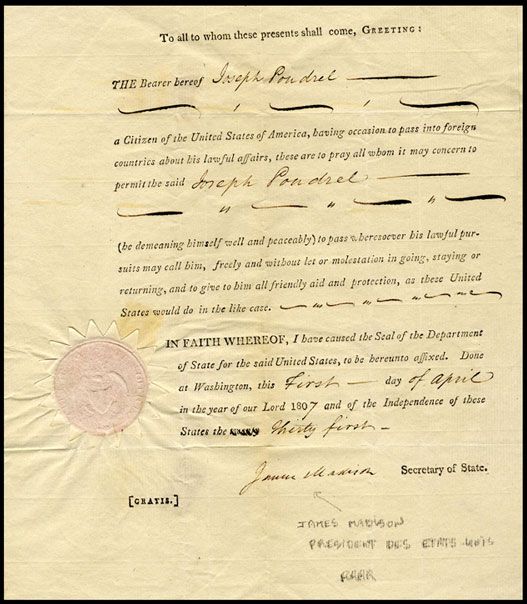 To all to whom these presents shall come, GREETING:
THE Bearer hereof Joseph Poudrel
a Citizen of the United States of America, having occasion to pass into foreign
countries about his lawful affairs, these are to pray all whom it may concern to
permit the said Joseph Poudrel
(he demeaning himself well and peaceably) to pass wheresoever his lawful pur-
suits may call him, freely and without let or molestation in going, staying or
returning, and to give to him all friendly aid and protection, as these United
States would do in the like case.
IN FAITH WHEREOF, I have caused the Seal of the Department
of State for the said United States, to be hereunto affixed. Done
at Washington, this First day of April
in the year of our Lord 1807 and of the Independence of these
States the Thirty first
James Madison Secretary of State.
[GRATIS.]
JAMES MADISON
PRESIDENT DES ETATS-UNIS
RARR